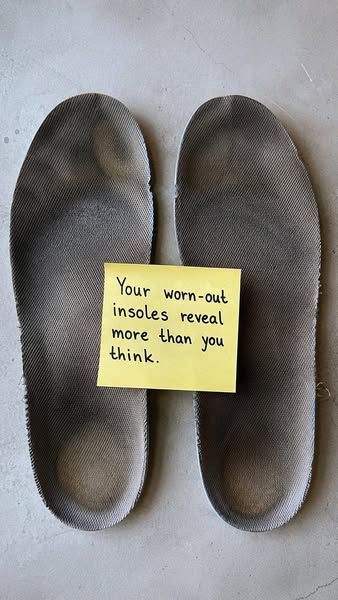 Your worn-out
insoles reveal
more than you
think.